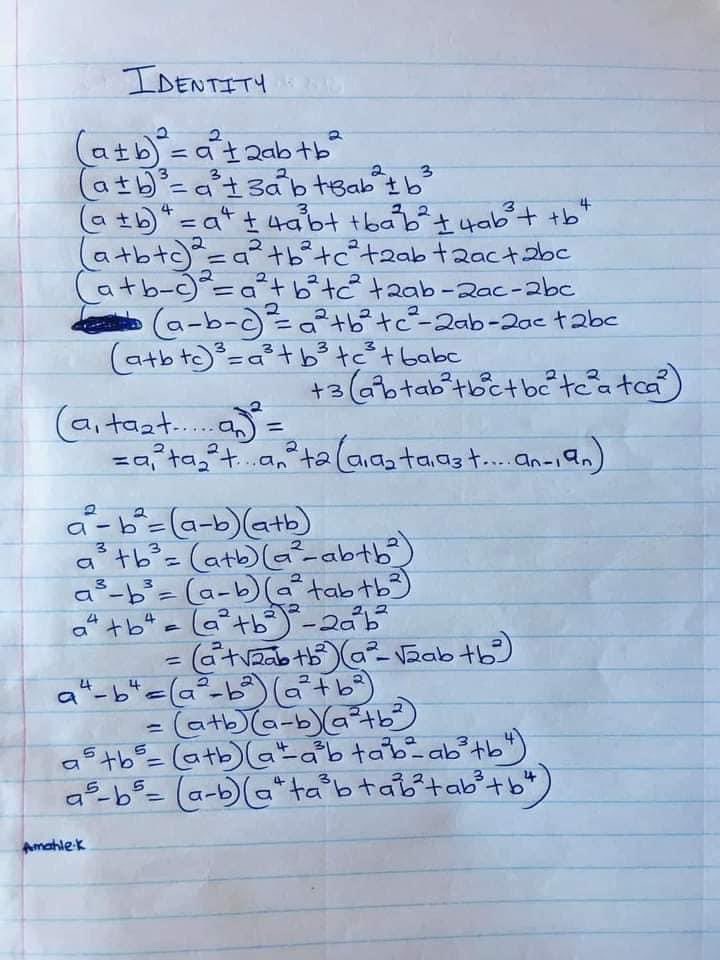 IDENTITY
(a±b)² = a² ± 2ab + b²
(a±b)³ = a³ ± 3a²b + 3ab² ± b³
(a±b)⁴ = a⁴ ± 4a³b+ +6a²b² ± 4ab³+ +b⁴
(a+b+c)² = a² + b² + c² + 2ab + 2ac + 2bc
(a+b-c)² = a² + b² + c² + 2ab - 2ac - 2bc
(a-b-c)² = a² + b² + c² - 2ab - 2ac + 2bc
(a+b+c)³ = a³ + b³ + c³ + 6abc
+3(a²b + ab² + b²c + bc² + c²a + ca²)
(a₁ + a₂ + ..... aₙ)² =
= a₁² + a₂² + ... aₙ² + 2(a₁a₂ + a₁a₃ + .... aₙ₋₁, aₙ)
a² - b² = (a-b)(a+b)
a³ + b³ = (a+b)(a² - ab + b²)
a³ - b³ = (a-b)(a² + ab + b²)
a⁴ + b⁴ = (a² + b²)² - 2a²b²
= (a² + √2ab + b²)(a² - √2ab + b²)
a⁴ - b⁴ = (a² - b²)(a² + b²)
= (a+b)(a-b)(a² + b²)
a⁵ + b⁵ = (a+b)(a⁴ - a³b + a²b² - ab³ + b⁴)
a⁵ - b⁵ = (a-b)(a⁴ + a³b + a²b² + ab³ + b⁴)
Amahle.K